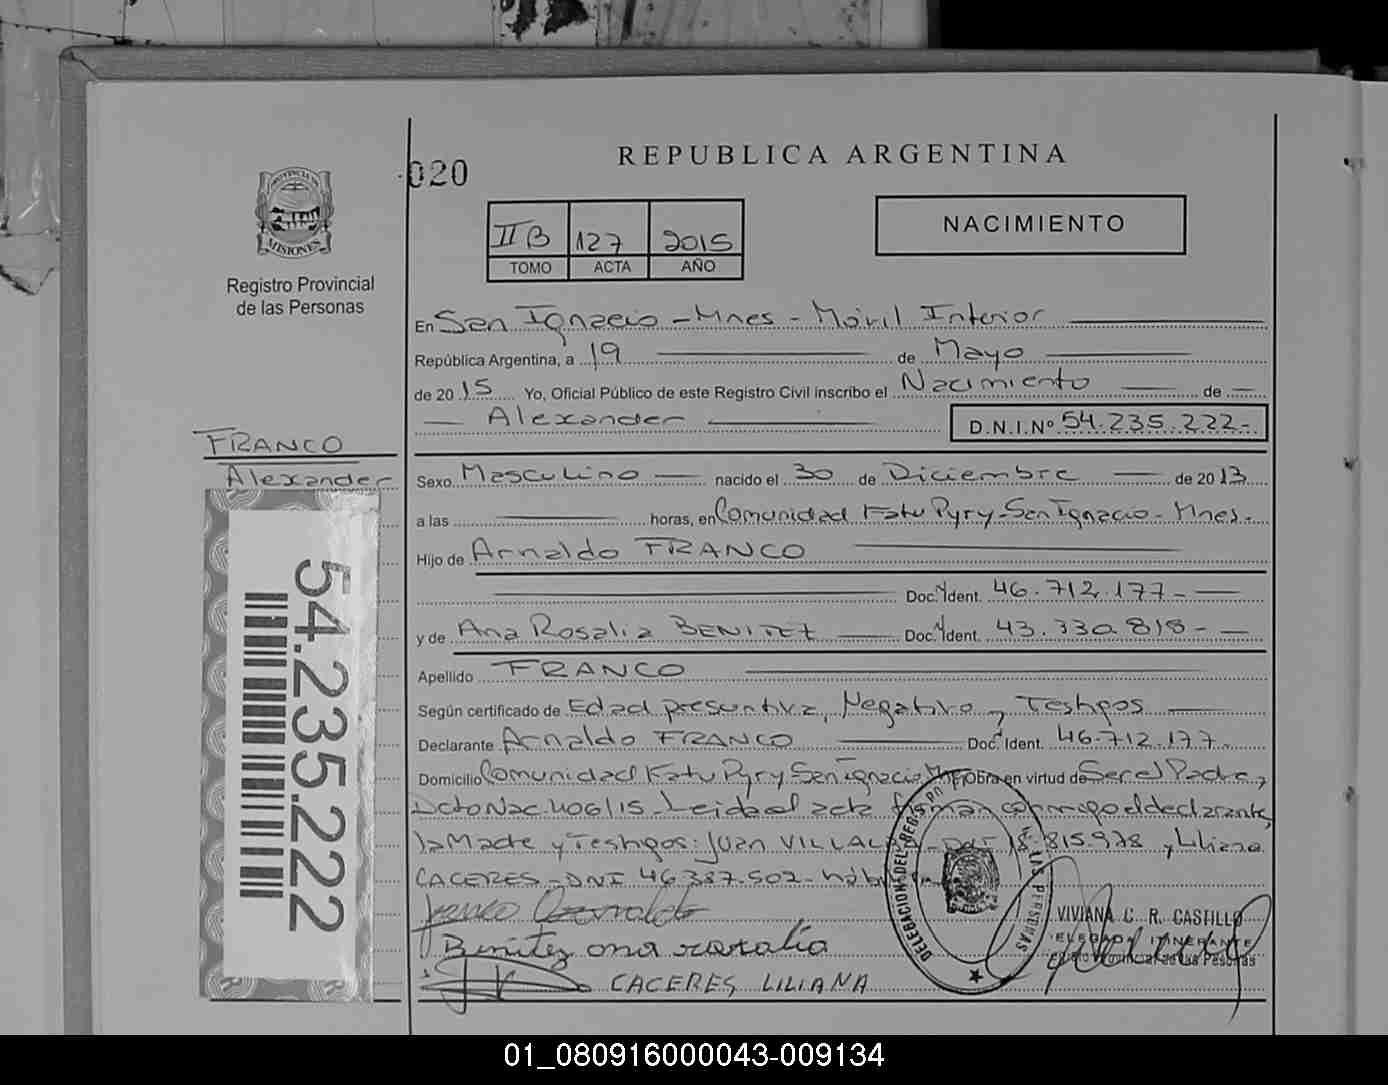 020
REPUBLICA ARGENTINA
PROVINCIA DE
MISIONES
Registro Provincial
de las Personas
II B 127 2015
TOMO ACTA AÑO
NACIMIENTO
En San Ignacio - Mnes - Móvil Interior
República Argentina, a 19 de Mayo
de 2015 Yo, Oficial Público de este Registro Civil inscribo el Nacimiento de
Alexander D.N.I.Nº 54.235.222-
FRANCO
Alexander
Sexo Masculino nacido el 30 de Diciembre de 2013
a las horas, en Comunidad Katu Pyry - San Ignacio - Mnes.
Hijo de Arnaldo FRANCO
Doc. Ident. 46.712.177-
y de Ana Rosalia BENITEZ Doc. Ident. 43.330.818-
Apellido FRANCO
Según certificado de Edad presuntiva, Negativo y Testigos
Declarante Arnaldo FRANCO Doc. Ident. 46.712.177.
Domicilio Comunidad Katu Pyry San Ignacio Mnes Obra en virtud de Ser el Padre,
Dcto Nac. 406/15 - Leida el acta firman conmigo el declarante,
la Madre y Testigos: Juan 815.978 y Liliana
CACERES - DNI 46.387.507 -
54.235.222
Franco Arnaldo
Benitez ana rosalia
CACERES LILIANA
DELEGACION DEL REGIS LAS PERSONAS
VIVIANA C. R. CASTILLO
DELEGADA ITINERANTE
Registro Provincial de las Personas
01_080916000043-009134